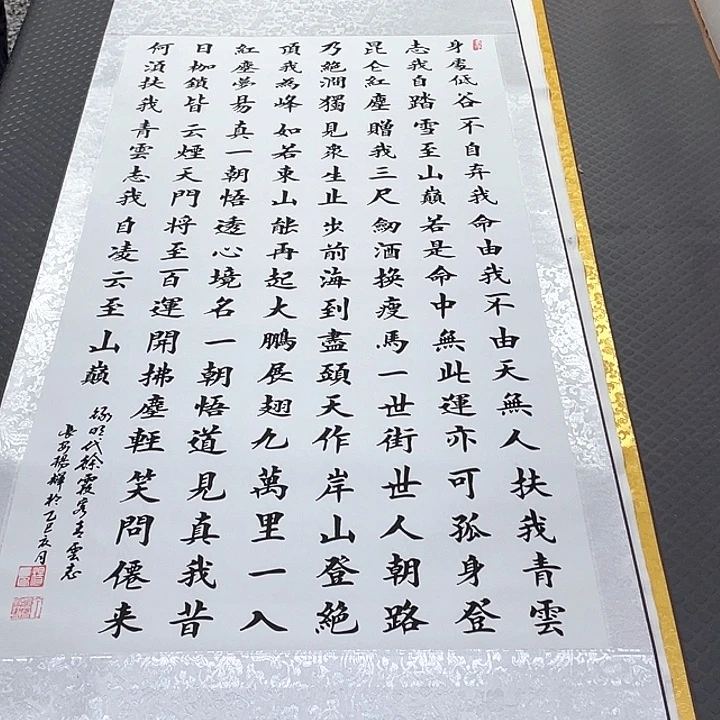 身處低谷不自弃我命由我不由天無人扶我青雲
志我自踏雪至山巔若是命中無此運亦可孤身登
昆仑紅塵贈我三尺劒酒換瘦馬一世街世人朝路
乃絕澗獨見衆生止步前海到盡頭天作岸山登絕
頂我為峰如若東山能再起大鵬展翅九萬里一入
紅塵夢易真一朝悟透心境名一朝悟道見真我昔
日枷鎖皆云煙天門将至百運開拂塵輕笑問僊来
何湏扶我青雲志我自凌云至山巔
録明代徐霞客青雲志
長安揚輝於乙巳亥月